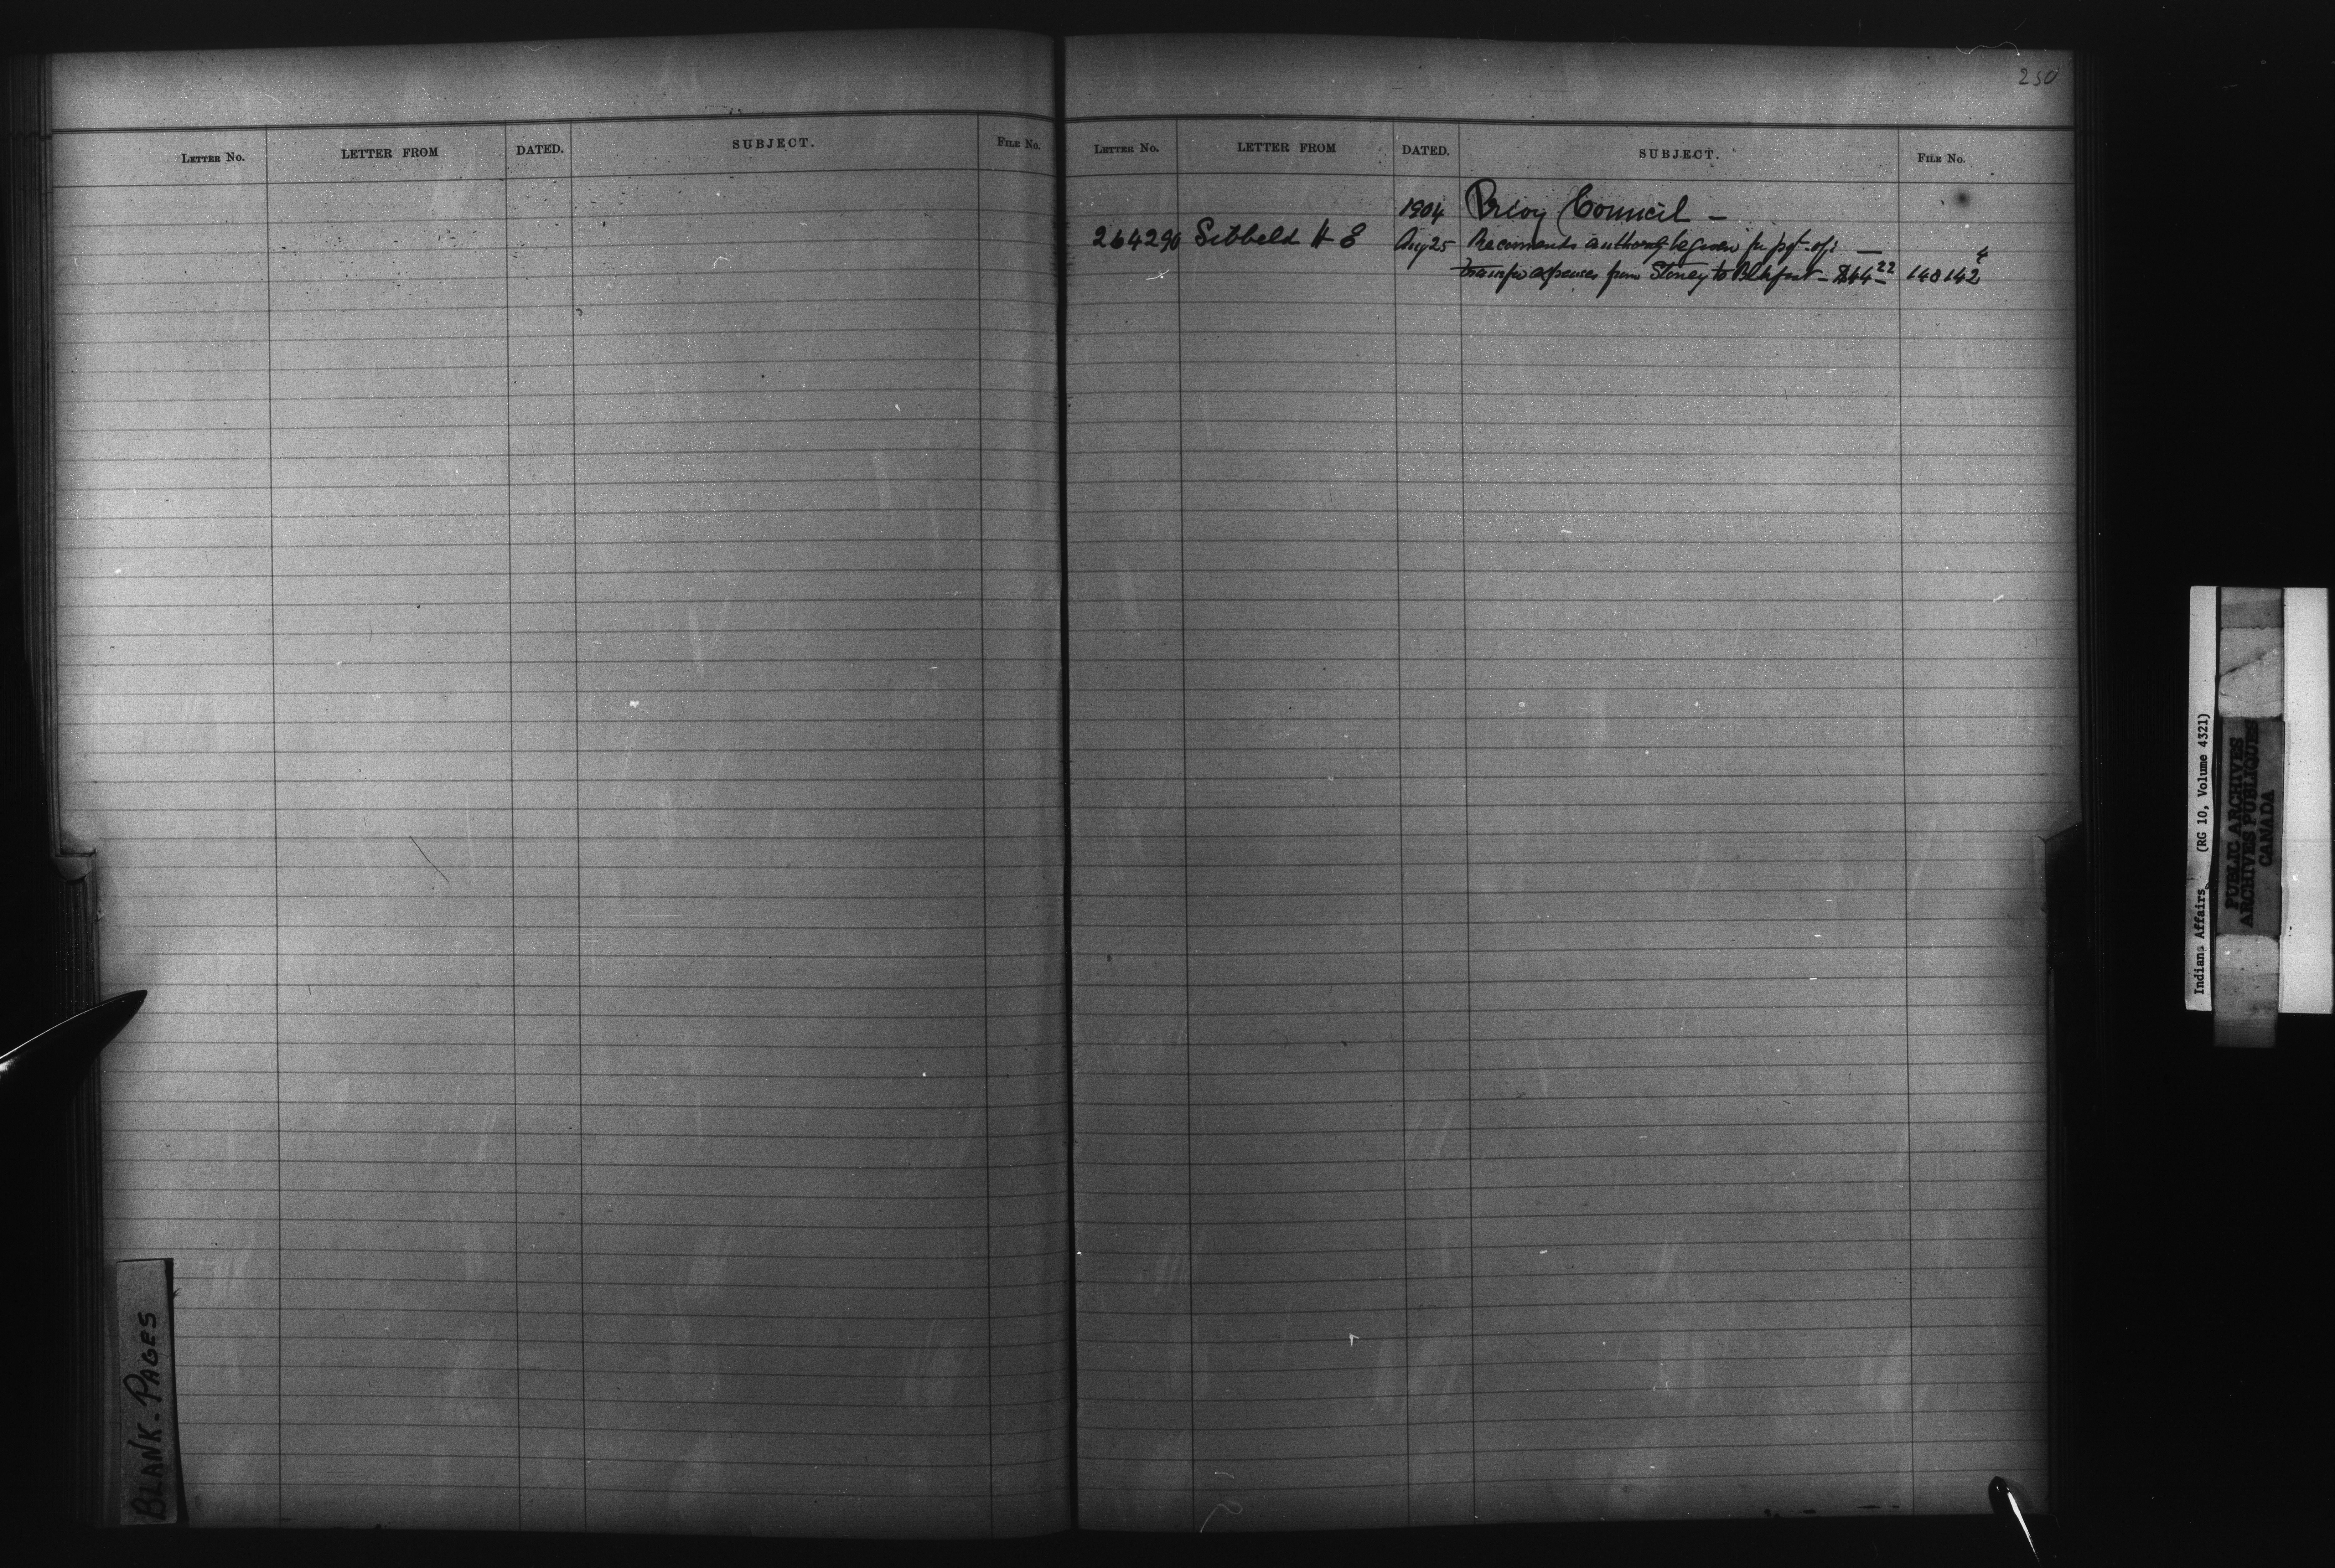 250
LETTER NO. LETTER FROM DATED. SUBJECT. FILE NO.
LETTER NO. LETTER FROM DATED. SUBJECT. FILE NO.
1904 Privy Council —
264290 Sibbald H E Aug 25 Recommends authority be given for pyt. of :— 4
transfer expenses from Stoney to Blkfoot — $44 22 148142
BLANK-PAGES
Indians Affairs (RG 10, Volume 4321)
PUBLIC ARCHIVES
ARCHIVES PUBLIQUES
CANADA